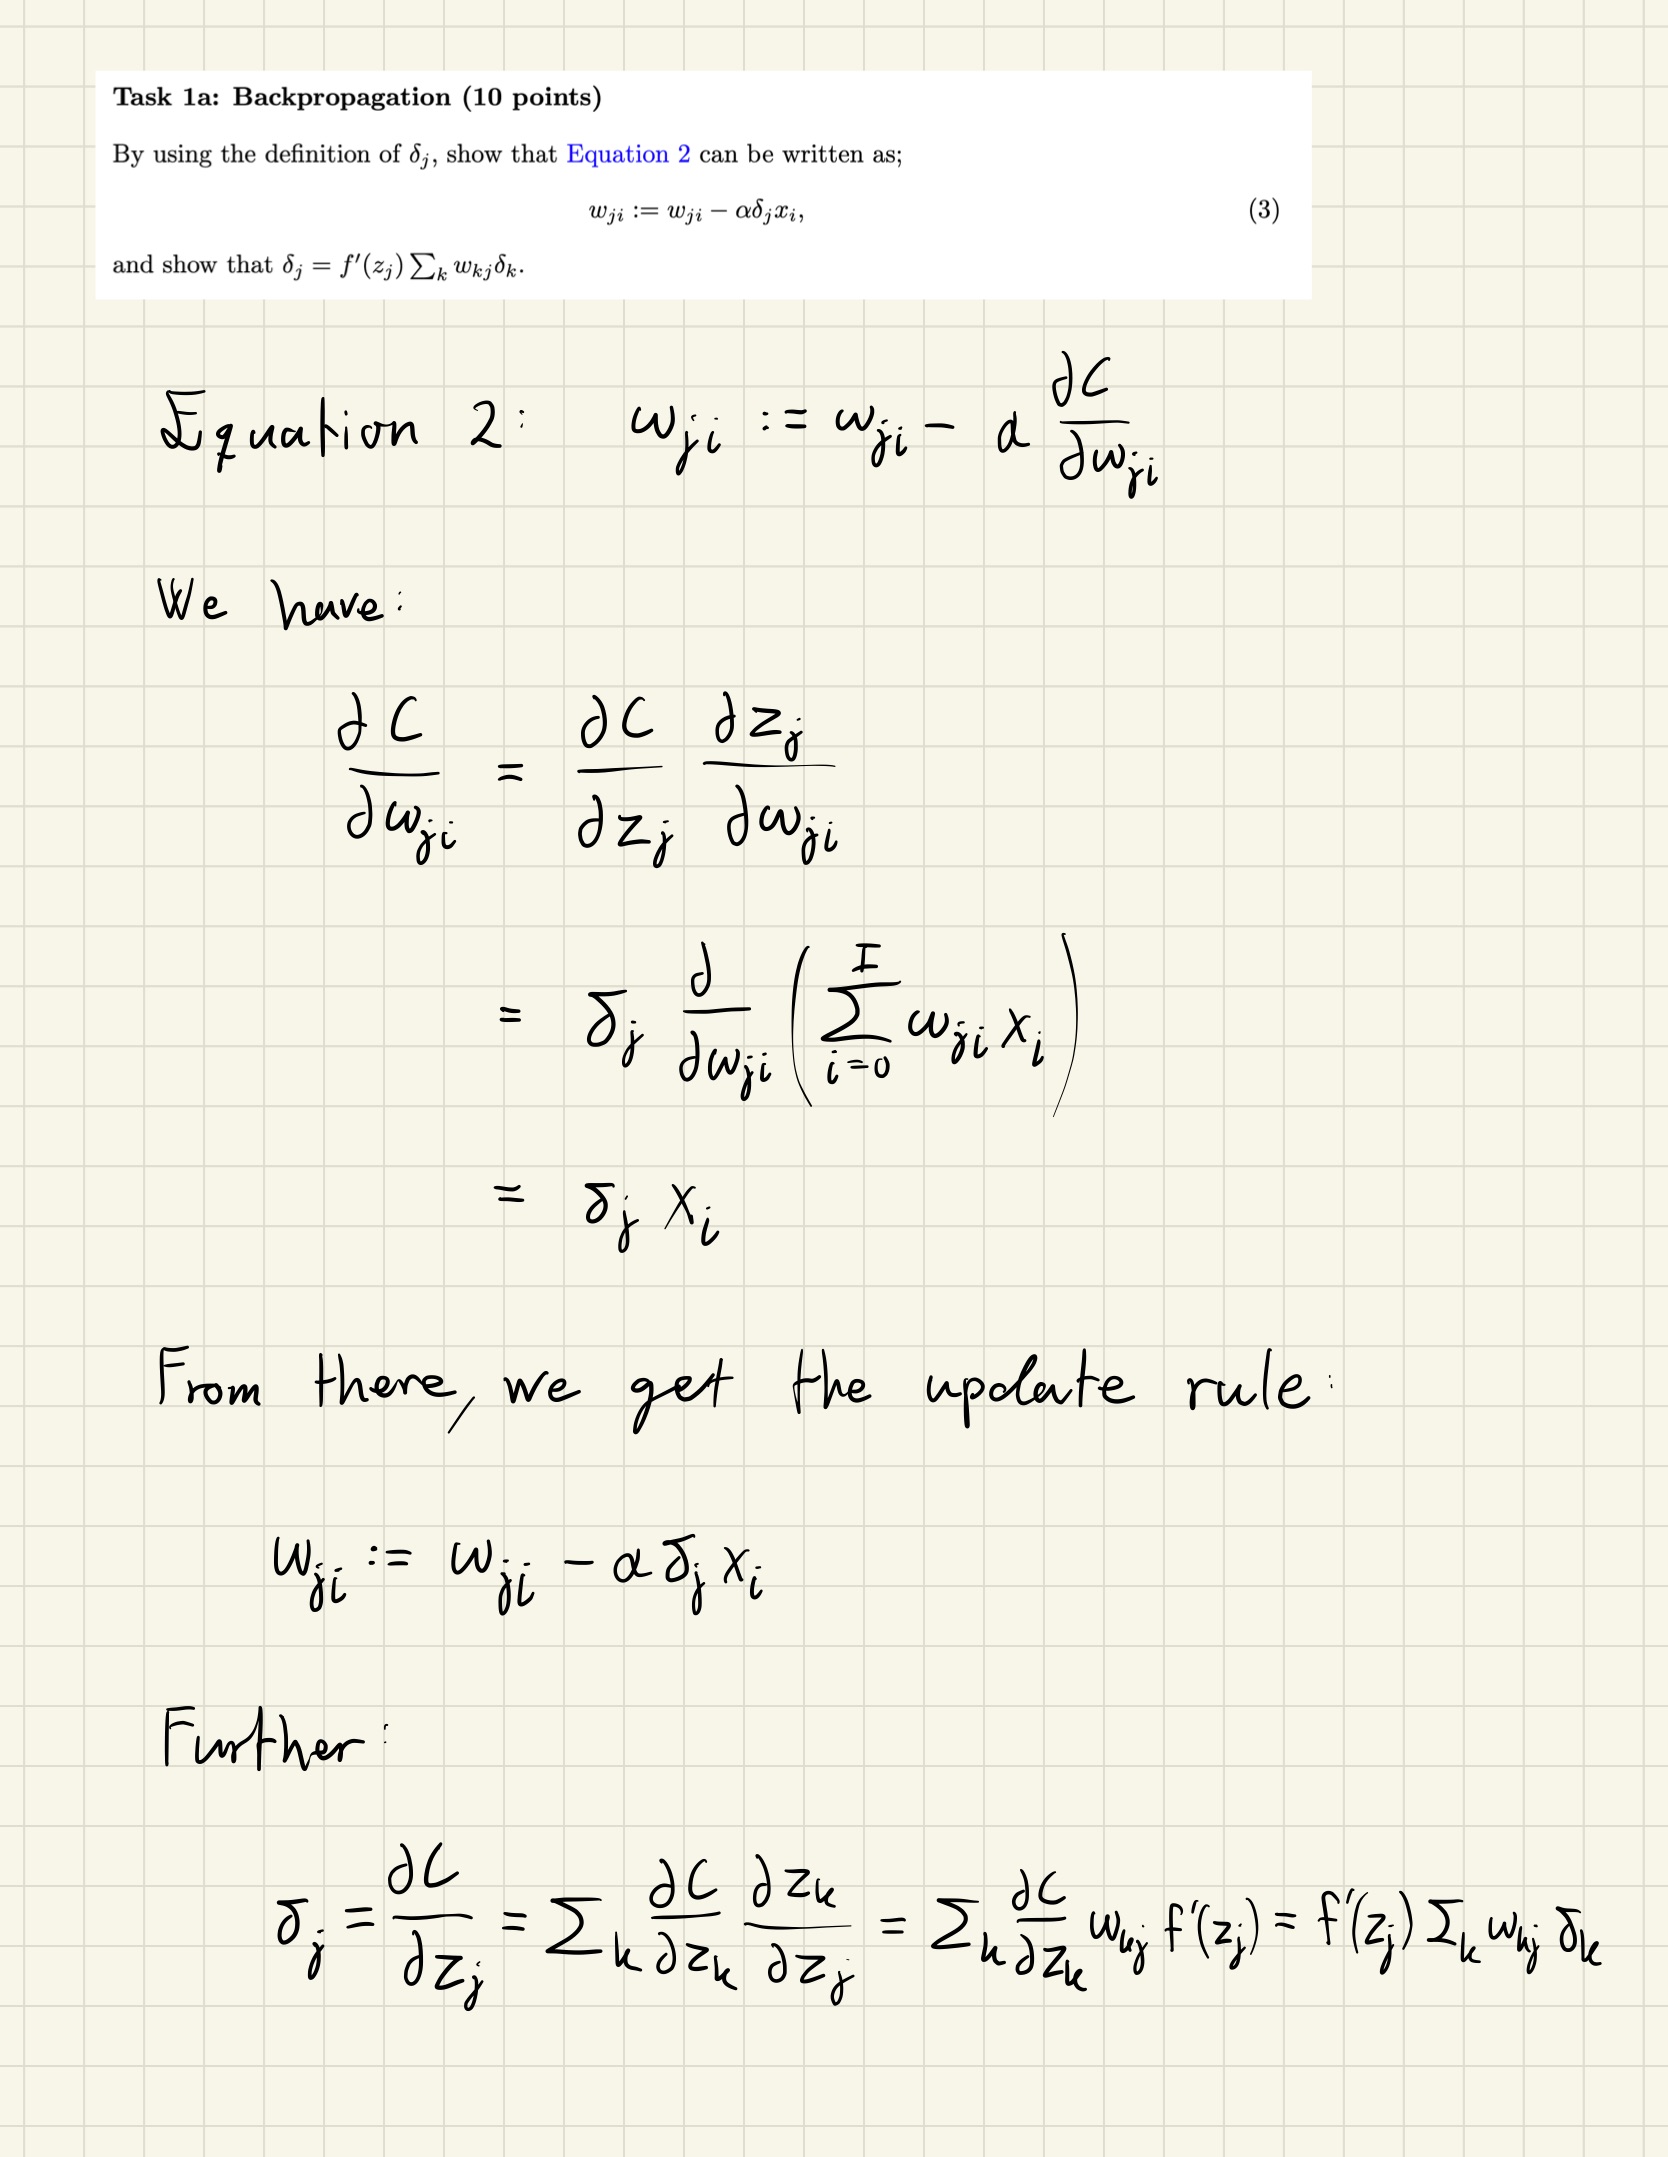 Task 1a: Backpropagation (10 points)
By using the definition of δ_j, show that Equation 2 can be written as;
w_{ji} := w_{ji} − αδ_j x_i, (3)
and show that δ_j = f′(z_j) ∑_k w_{kj}δ_k.
Equation 2: w_{ji} := w_{ji} − α ∂C/∂w_{ji}
We have:
∂C/∂w_{ji} = ∂C/∂z_j ∂z_j/∂w_{ji}
= δ_j ∂/∂w_{ji} (∑_{i=0}^{I} w_{ji} x_i)
= δ_j x_i
From there, we get the update rule:
w_{ji} := w_{ji} − α δ_j x_i
Further:
δ_j = ∂C/∂z_j = ∑_k ∂C/∂z_k ∂z_k/∂z_j = ∑_k ∂C/∂z_k w_{kj} f′(z_j) = f′(z_j) ∑_k w_{kj} δ_k